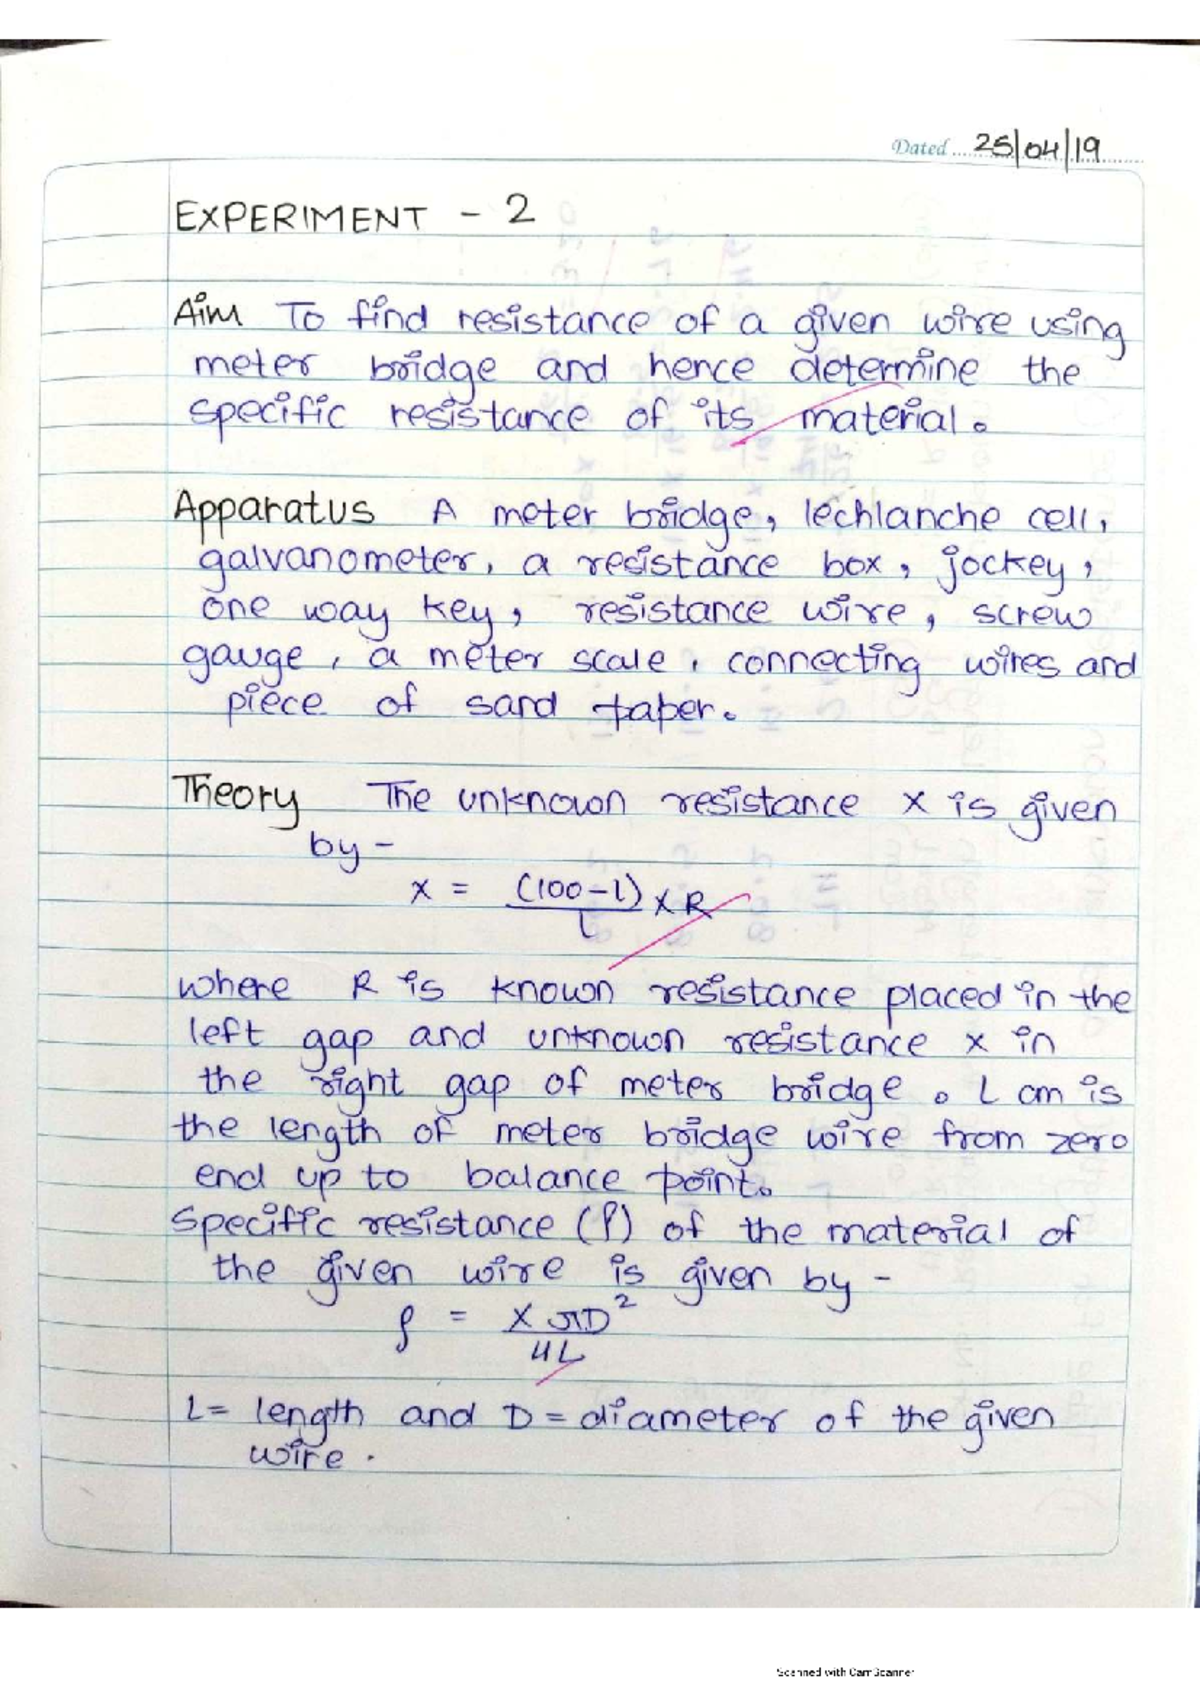 Dated .... 25/04/19
EXPERIMENT - 2
Aim To find resistance of a given wire using
meter bridge and hence determine the
specific resistance of its material.
Apparatus A meter bridge, lechlanche cell,
galvanometer, a resistance box, jockey,
one way key, resistance wire, screw
gauge, a meter scale, connecting wires and
piece of sand paper.
Theory The unknown resistance X is given
by -
X = (100-l)/l X R
where R is known resistance placed in the
left gap and unknown resistance x in
the right gap of meter bridge. L cm is
the length of meter bridge wire from zero
end up to balance point.
Specific resistance (ρ) of the material of
the given wire is given by -
ρ = XπD²/4L
L = length and D = diameter of the given
wire.
Scanned with CamScanner